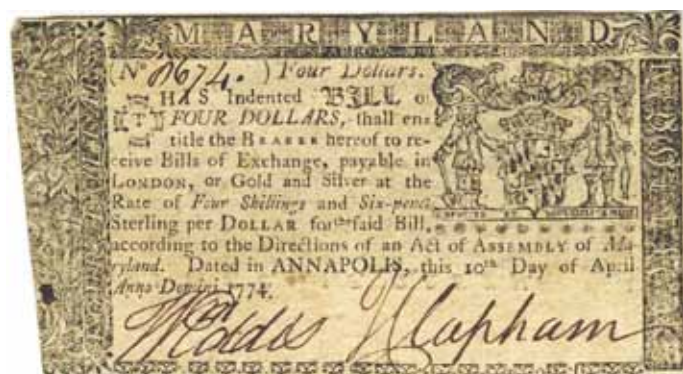 MARYLAND
(No 8674.) Four Dollars.
THIS Indented BILL of
FOUR DOLLARS, shall en=
title the BEARER hereof to re-
ceive Bills of Exchange, payable in
LONDON, or Gold and Silver at the
Rate of Four Shillings and Six-pence
Sterling per DOLLAR for the said Bill,
according to the Directions of an Act of ASSEMBLY of Ma-
ryland. Dated in ANNAPOLIS, this 10th Day of April
Anno Domini 1774.
Wm Eddis J Clapham